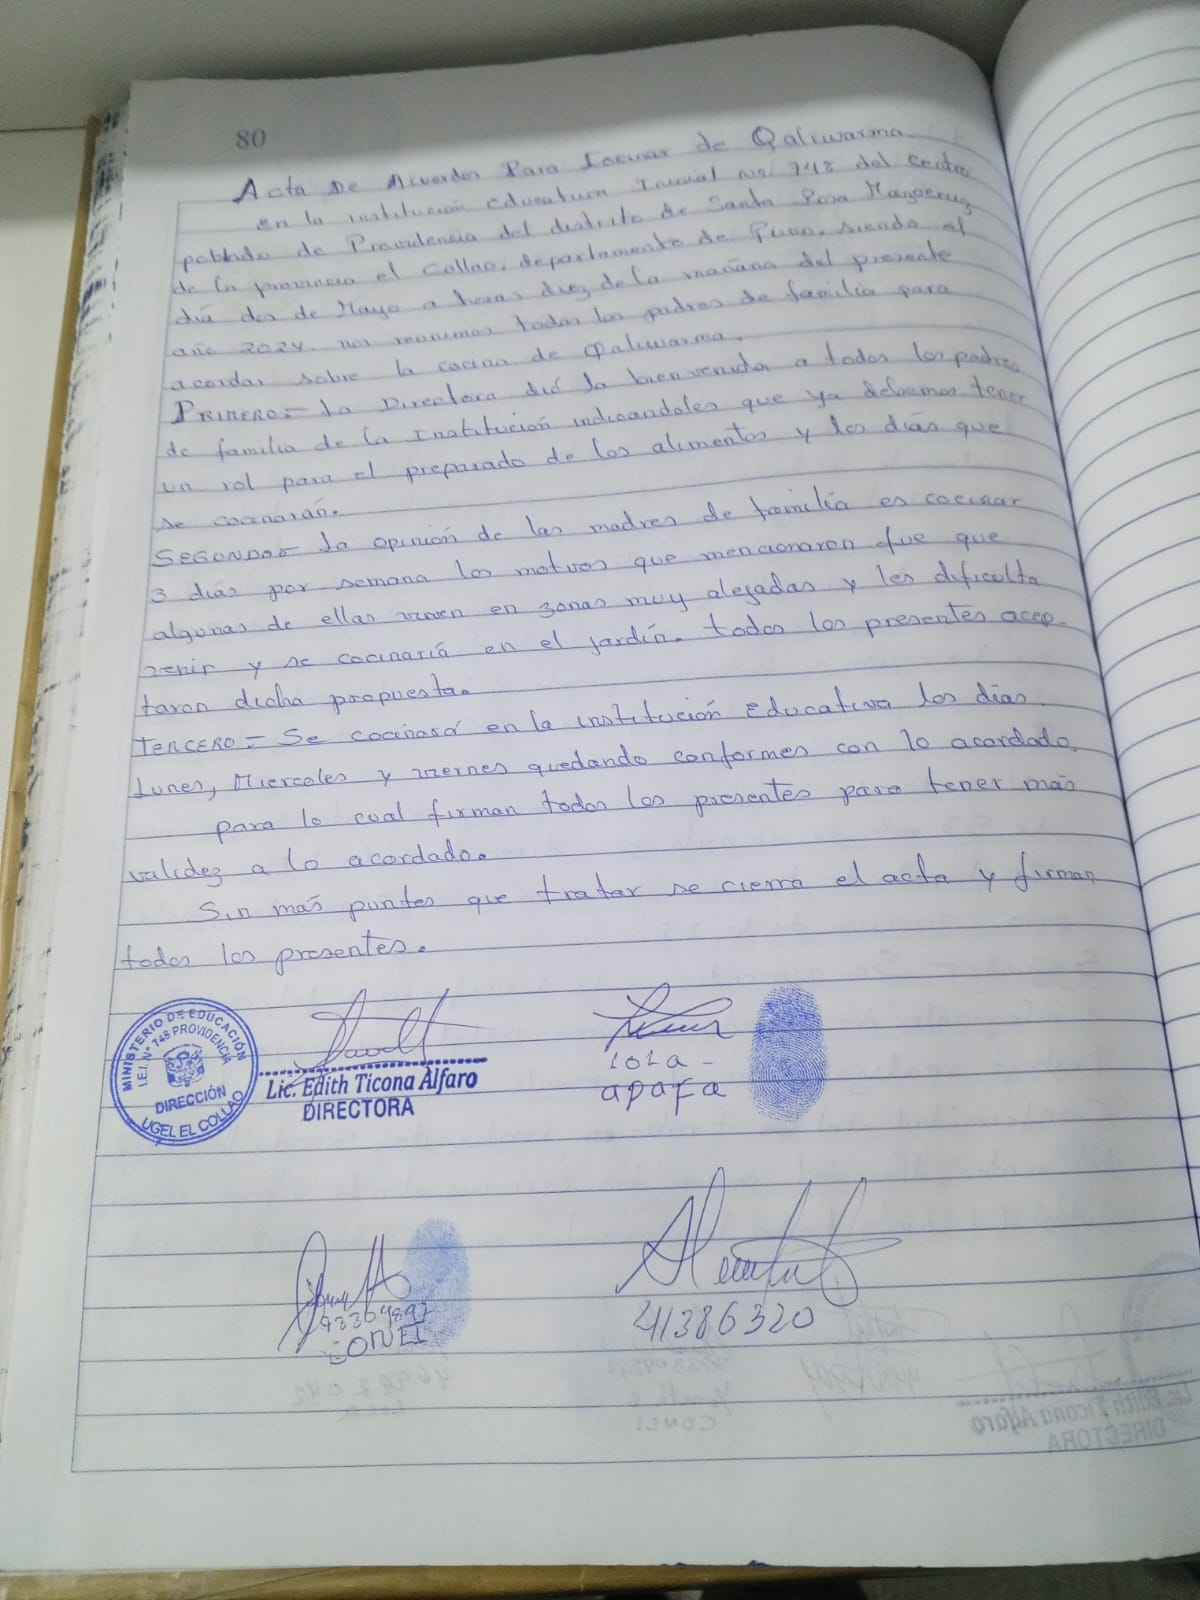 80
Acta De Acuerdos Para Cocinar de Qaliwarma
en la institución educativa Inicial No. 748 del centro
poblado de Providencia del distrito de Santa Rosa Mazocruz
de la provincia el Collao, departamento de Puno, siendo el
día dos de Mayo a horas diez de la mañana del presente
año 2024. nos reunimos todos los padres de familia para
acordar sobre la cocina de Qaliwarma.
PRIMERO = La Directora dió la bienvenida a todos los padres
de familia de la Institución indicandoles que ya debemos tener
un rol para el preparado de los alimentos y los días que
se cocinarán.
SEGUNDO = La opinión de las madres de familia es cocinar
3 días por semana los motivos que mencionaron fue que
algunas de ellas viven en zonas muy alejadas y les dificulta
venir y se cocinaría en el jardín. todos los presentes acep-
taron dicha propuesta.
TERCERO = Se cocinará en la institución Educativa los días
Lunes, Miercoles y viernes quedando conformes con lo acordado
para lo cual firman todos los presentes para tener más
validez a lo acordado.
Sin más puntos que tratar se cierra el acta y firman
todos los presentes.
MINISTERIO DE EDUCACIÓN
I.E.I. N° 748 PROVIDENCIA
DIRECCIÓN
UGEL EL COLLAO
Lic. Edith Ticona Alfaro
DIRECTORA
LOLA -
apafa
CONEI
41386320
Lic. Edith Ticona Alfaro
DIRECTORA
CONEI